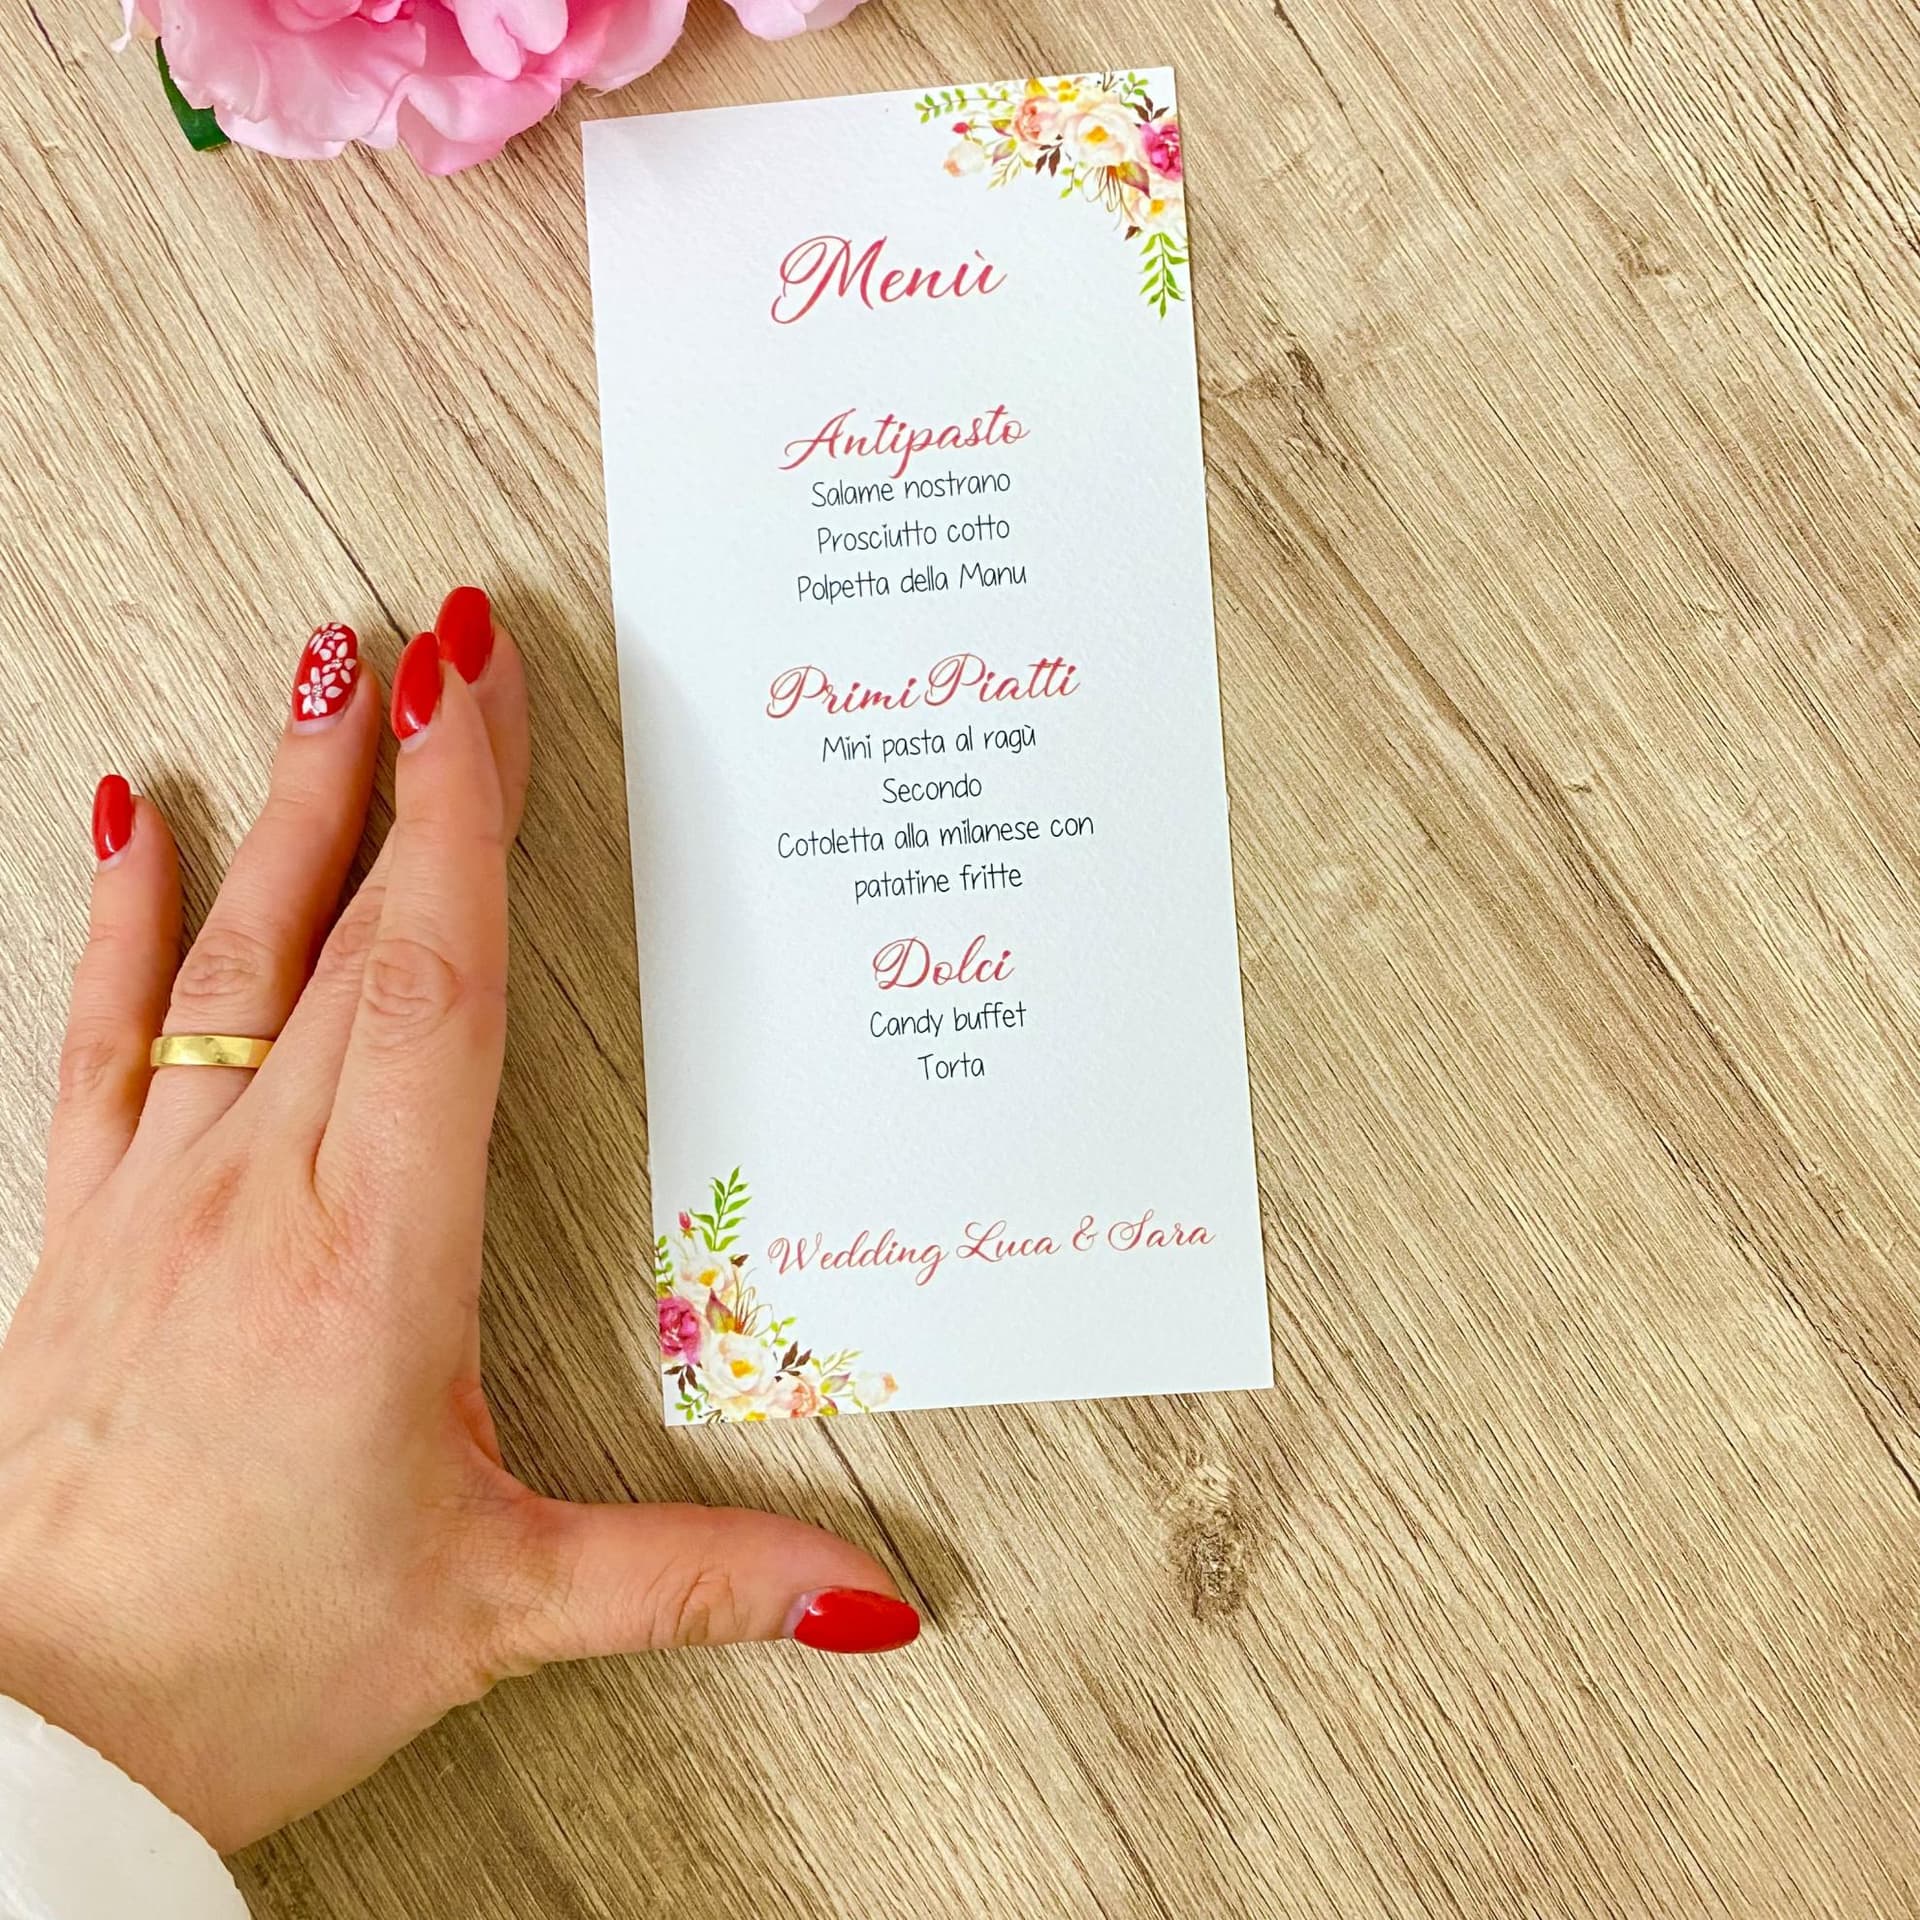 Menù
Antipasto
Salame nostrano
Prosciutto cotto
Polpetta della Manu
Primi Piatti
Mini pasta al ragù
Secondo
Cotoletta alla milanese con
patatine fritte
Dolci
Candy buffet
Torta
Wedding Luca & Sara